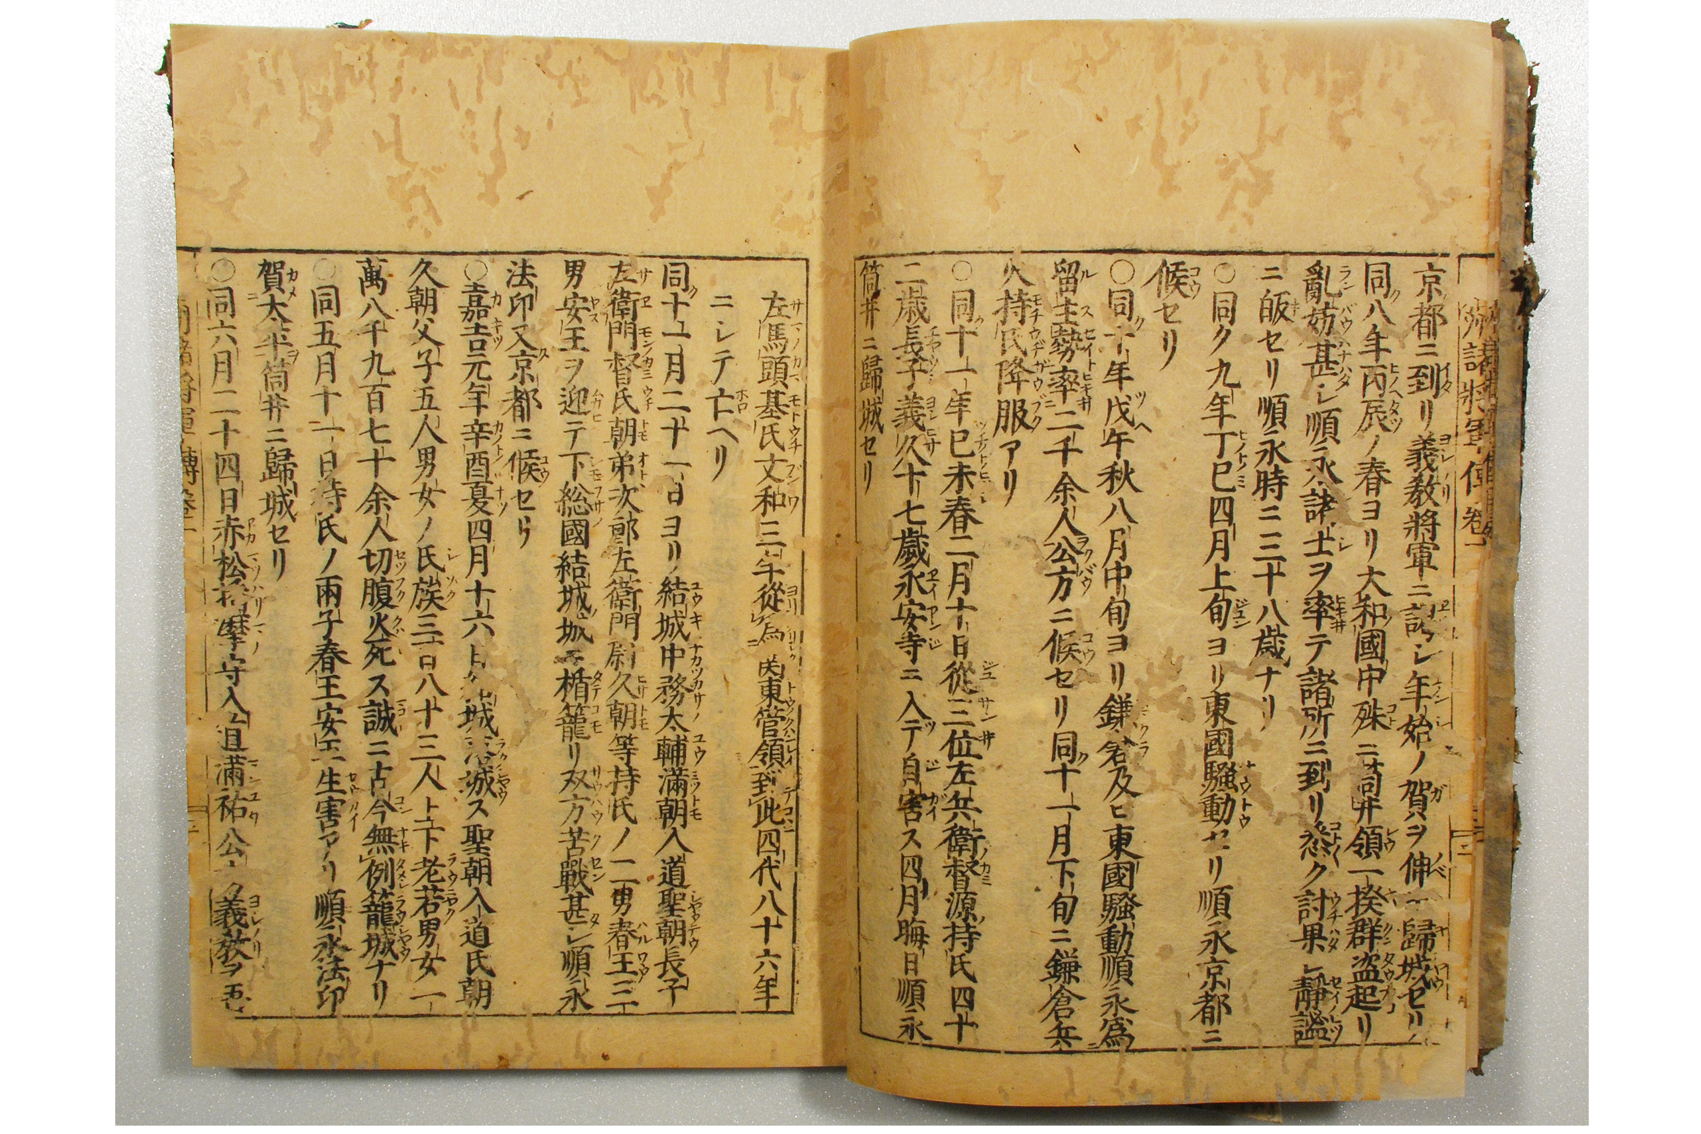 京都ニ到リ義教將軍ニ謁シ年始ノ賀ヲ伸歸城セリ
同八年丙辰ノ春ヨリ大和國中殊ニ筒井領一揆群盗起リ
亂妨甚シ順永諸士ヲ率テ諸所ニ到リ悉ク討果シ靜謐
ニ皈セリ順永時ニ三十八歳ナリ
○同ク九年丁巳四月上旬ヨリ東國騷動セリ順永京都ニ
候セリ
○同十年戊午秋八月中旬ヨリ鎌倉及ヒ東國騷動順永爲
留主勢率二千余人公方ニ候セリ同十一月下旬ニ鎌倉兵
火持氏降服アリ
○同十一年巳未春二月十日從三位左兵衛督源持氏四十
二歳長子義久十七歳永安寺ニ入テ自害ス四月晦日順永
筒井ニ歸城セリ
左馬頭基氏文和三年從爲関東管領到此四代八十六年
ニシテ亡ヘリ
同十一月二十一日ヨリ結城中務大輔滿朝入道聖朝長子
左衛門督氏朝弟次郎左衛門尉久朝等持氏ノ二男春王三
男安王ヲ迎テ下総國結城城ニ楯籠リ双方苦戰甚シ順永
法印又京都ニ候セリ
○嘉吉元年辛酉夏四月十六日結城落城ス聖朝入道氏朝
久朝父子五人男女ノ氏族三百八十三人上下老若男女一
萬八千九百七十余人切腹火死ス誠ニ古今無例籠城ナリ
○同五月十一日持氏ノ兩子春王安王生害アリ順永法印
賀太平筒井ニ歸城セリ
○同六月二十四日赤松播摩守入道滿祐公方義教ヲ